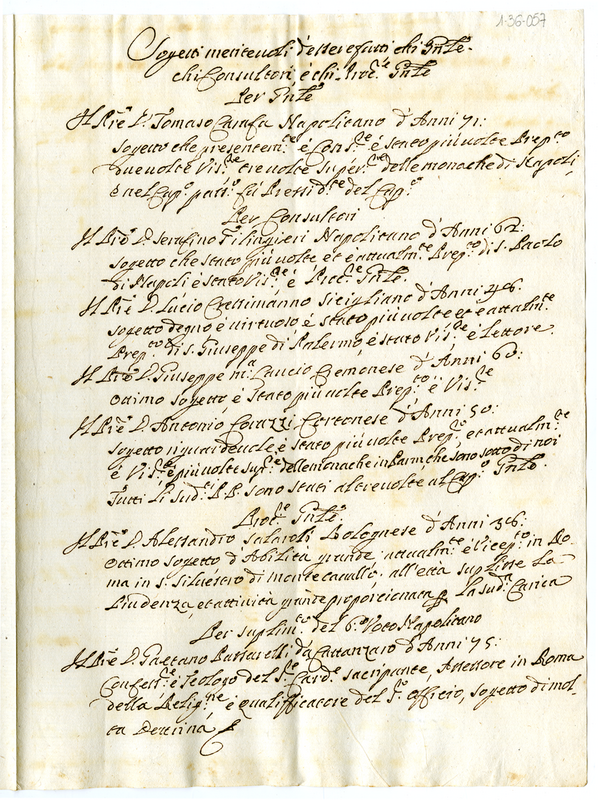 1-36-057
Sogetti meritevoli d'esser fatti chi Gnle.
chi Consultori, é chi Proc.re Gnle
Per Gnle
Il Pre D. Tomaso Carafa Napolitano d'Anni 71:
sogetto che presentem.te é Cons.re é stato piú volte Prep.to
due volte Vis.re tre volte Super.re delle monache di Napoli,
é nel Cap.o del Cap.o
Per Consultori
Il Pre D. Serafino Filingieri Napolitano d'Anni 62:
sogetto che stato piú volte et é attualm.te Prep.to di S. Paolo
di Napoli é stato Vis.re é Proc.re Gnle.
Il Pre D. Lucio Sicigliano d'Anni 46.
sogetto degno é virtuoso é stato piú volte et é attualm.te
Prep.to di S. Giuseppe di Palermo, é stato Vis.re é Lettore.
Il Pre D. Giuseppe M.a Cremonese d'Anni 60:
Ottimo sogetto, é stato piú volte Prep.to é Vis.re
Il Pre D. Antonio Corazzi Cortonese d'Anni 50:
sogetto riguardevole é stato piú volte Prep.to, et attualm.te
é Vis.re, é piú volte sup.re delle monache in Parm, che sono sotto di noi
Tutti li sud.i P.P. sono stati altre volte al Cap.o Gnle.
Proc.re Gnle.
Il Pre D. Alessandro Bolognese d'Anni 36:
Ottimo sogetto d'Abilitá grande attualm.te é Vicep.to in Ro-
ma in S. Silvestro di monte cavallo. all'ettá suplisse La
Prudenza, et attivitá grande proporcionata p La sud.a Carica
Per suplim.to del 6.o Voto Napolitano
Il Pre D. Gaetano da Cattanzaro d'Anni 75:
Confess.re é Teologo del S.re Card.e Sacripante, Assessore in Roma
della é qualifficatore del S.o Officio, sogetto di mol-
ta Dottrina